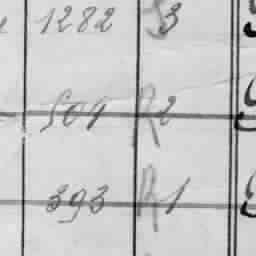 1282 S3
509 R2
393 R1